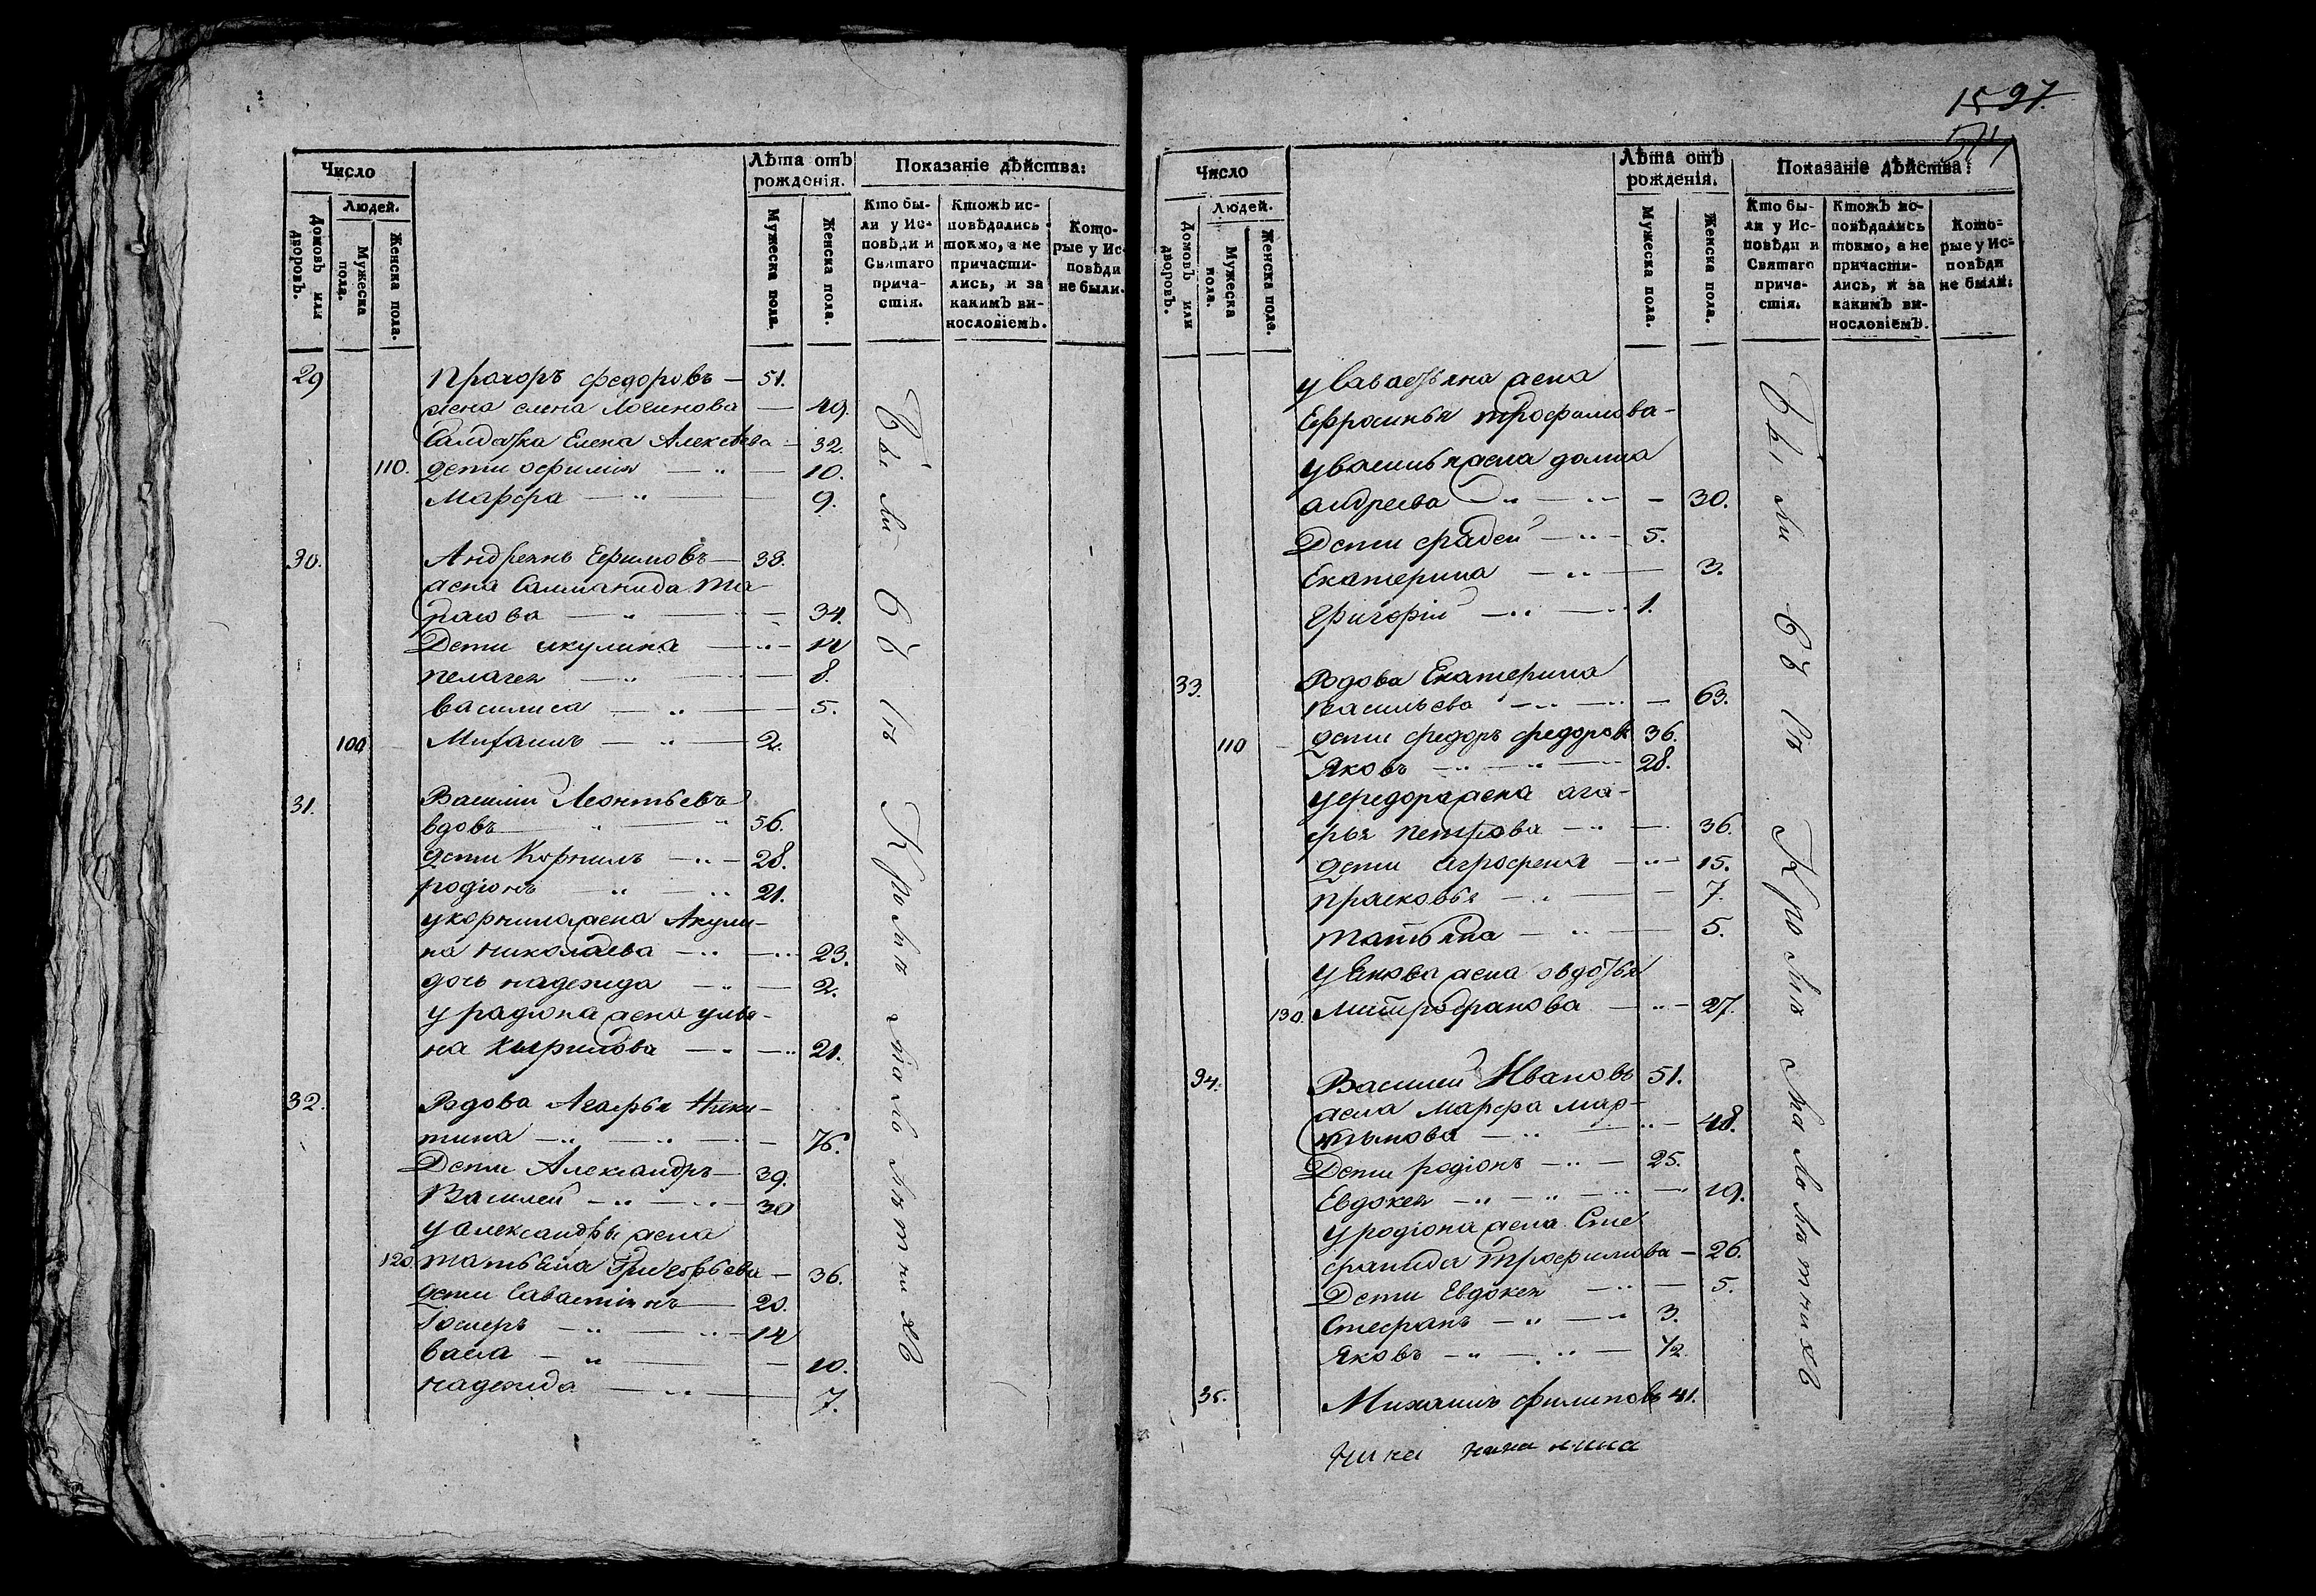 Число
Людей.
Домовъ или дворовъ.
Мужеска пола.
Женска пола.
Лѣта отъ рожденія.
Мужеска пола.
Женска пола.
Показаніе дѣйства:
Кто бы-
ли у Ис-
повѣди и
Святаго
прича-
стія.
Ктожъ ис-
повѣдались
токмо, а не
причасти-
лись, и за
какимъ ви-
нословіемъ.
Кото-
рые у Ис-
повѣди
не были.
29 Прохоръ федоровъ — 51.
жена елена Логинова — 49.
Салдатка Елена Алексѣева — 32.
110. дети офимія — 10.
Марфа — 9.
30. Андреянъ Ефимовъ — 38.
жена Саломанида
— 34.
Дети акулина —
пелагея — 8.
василиса — 5.
Михаилъ — 2.
31. Василій Леонтьевъ
вдовъ — 56.
дети Корнилъ — 28.
родіонъ — 21.
у корнила жена Акули-
на николаева — 23.
дочь надежда — 2.
у радіона жена улья-
на кырилова — 21.
32. Вдова Агафья Ники-
тина — 76.
Дети Александръ — 39.
Василей — 30
у александры жена
120. татьяна Григорьева — 36.
дети Савастіянъ — 20.
— 14
васса — 10.
надежда — 7.
Были
Кромѣ малолѣтнихъ
1597.
Число
Людей.
Домовъ или дворовъ.
Мужеска пола.
Женска пола.
Лѣта отъ рожденія.
Мужеска пола.
Женска пола.
Показаніе дѣйства:
Кто бы-
ли у Ис-
повѣди и
Святаго
прича-
стія.
Ктожъ ис-
повѣдались
токмо, а не
причасти-
лись, и за
какимъ ви-
нословіемъ.
Кото-
рые у Ис-
повѣди
не были.
у Савастьяна жена
Ефросинья трофимова —
у василья жена домна
андреева — 30.
Дети фадей — 5.
Екатерина — 3.
григорій — 1.
33. Вдова Екатерина
васильева — 63.
110 дети федоръ федоровъ 36.
Яковъ — 28.
у федора жена ага-
фья петрова — 36.
дети агрофена — 15.
прасковья — 7.
татьяна — 5.
у Якова жена овдотья
130. митрофанова — 27.
34. Василей Ивановъ 51.
жена марфа мар-
тынова — 48.
Дети родіонъ — 25.
Евдокея — 19.
у родіона жена Сте-
фанида трофимова — 26.
Дети Евдокея — 5.
Стефанъ — 3.
Яковъ — 1/2.
35. Михаилъ филиповъ 41.
Были
Кромѣ малолѣтнихъ